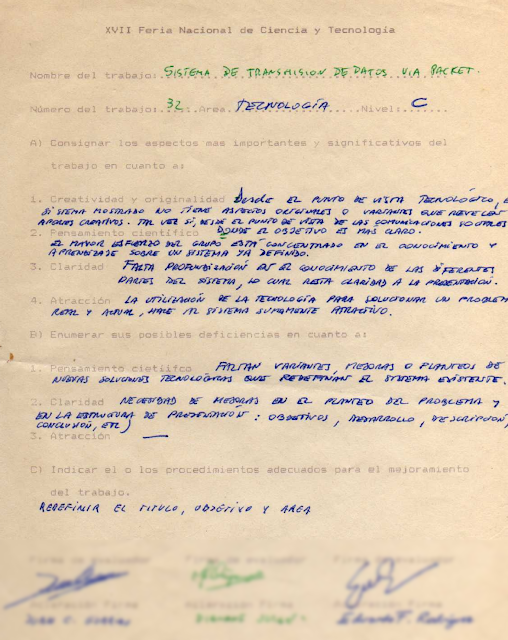 XVII Feria Nacional de Ciencia y Tecnología
Nombre del trabajo: SISTEMA DE TRANSMISION DE DATOS VIA PACKET.
Número del trabajo: 32 Area TECNOLOGÍA Nivel: C
A) Consignar los aspectos mas importantes y significativos del
trabajo en cuanto a:
1. Creatividad y originalidad DESDE EL PUNTO DE VISTA TECNOLÓGICO, E
SISTEMA MOSTRADO NO TIENE ASPECTOS ORIGINALES O VARIANTES QUE REVELEN
APORTES CREATIVOS. TAL VEZ SI, DESDE EL PUNTO DE VISTA DE LAS COMUNICACIONES SOCIALES
2. Pensamiento científico DONDE EL OBJETIVO ES MAS CLARO.
EL MAYOR ESFUERZO DEL GRUPO ESTÁ CONCENTRADO EN EL CONOCIMIENTO Y
APRENDIZAJE SOBRE UN SISTEMA YA DEFINIDO.
3. Claridad FALTA PROFUNDIZACIÓN EN EL CONOCIMIENTO DE LAS DIFERENTES
PARTES DEL SISTEMA, LO CUAL RESTA CLARIDAD A LA PRESENTACIÓN.
4. Atracción LA UTILIZACIÓN DE LA TECNOLOGÍA PARA SOLUCIONAR UN PROBLEMA
REAL Y ACTUAL, HACE AL SISTEMA SUMAMENTE ATRACTIVO.
B) Enumerar sus posibles deficiencias en cuanto a:
1. Pensamiento cietiífco FALTAN VARIANTES, MEJORAS O PLANTEOS DE
NUEVAS SOLUCIONES TECNOLÓGICAS QUE REDEFINAN EL SISTEMA EXISTENTE.
2. Claridad NECESIDAD DE MEJORAS EN EL PLANTEO DEL PROBLEMA Y
EN LA ESTRUCTURA DE PRESENTACIÓN: OBJETIVOS, DESARROLLO, DESCRIPCIÓN,
CONCLUSIÓN, ETC)
3. Atracción —
C) Indicar el o los procedimientos adecuados para el mejoramiento
del trabajo.
REDEFINIR EL TITULO, OBJETIVO Y AREA